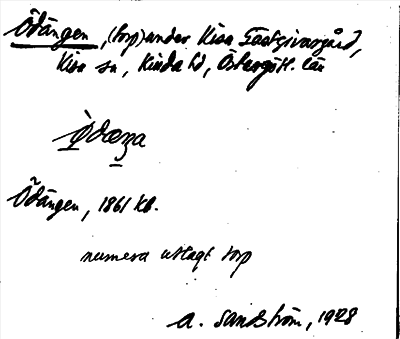 Ödängen, (torp) under Kisa Gästgivargård,
Kisa sn, Kinda hd, Östergötl. län
Ödängen, 1861 kb.
numera utlagt torp
A. Sandström, 1928